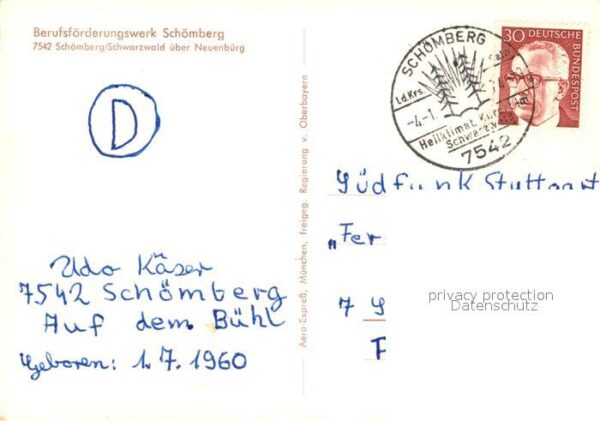 Berufsförderungswerk Schömberg
7542 Schömberg/Schwarzwald über Neuenbürg
D
Udo Käser
7542 Schömberg
Auf dem Bühl
Geboren: 1.7.1960
Aero-Expreß, München, freigeg. Regierung v. Oberbayern
SCHÖMBERG
Ld.Krs.
-4.-1.
Heilklimat. Kur
Schwarzw
7542
30 DEUTSCHE BUNDESPOST
Südfunk Stuttgart
„Fer
7 S
F
privacy protection
Datenschutz